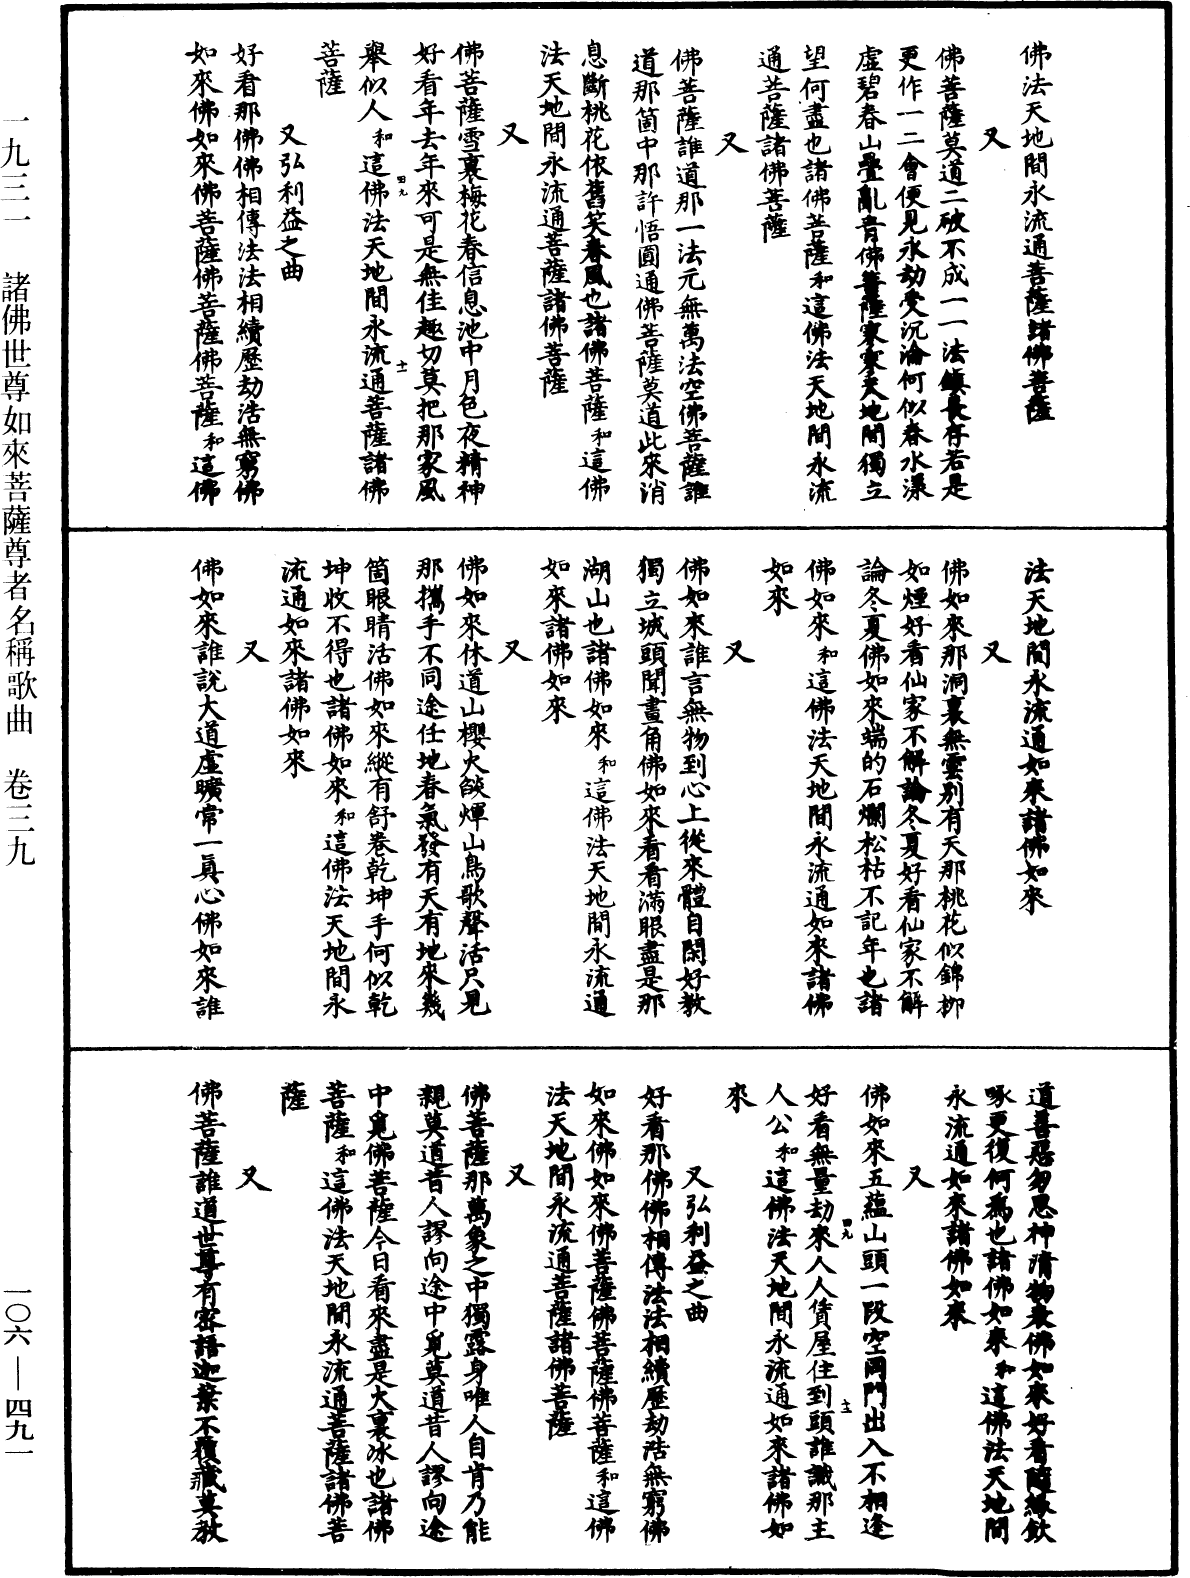 佛法天地間永流通菩薩諸佛菩薩
又
佛菩薩莫道二破不成一一法鎮長存若是
更作一二會便見永劫受沉淪何似春水漾
虛碧春山疊亂青佛菩薩寥寥天地間獨立
望何盡也諸佛菩薩和這佛法天地間永流
通菩薩諸佛菩薩
又
佛菩薩誰道那一法元無萬法空佛菩薩誰
道那箇中那許悟圓通佛菩薩莫道此來消
息斷桃花依舊笑春風也諸佛菩薩和這佛
法天地間永流通菩薩諸佛菩薩
又
佛菩薩雪裏梅花春信息池中月色夜精神
好看年去年來可是無佳趣切莫把那家風
舉似人和這佛法天地間永流通菩薩諸佛
菩薩
又弘利益之曲
好看那佛佛相傳法法相續歷劫浩無窮佛
如來佛如來佛菩薩佛菩薩佛菩薩和這佛
法天地間永流通如來諸佛如來
又
佛如來那洞裏無雲別有天那桃花似錦柳
如煙好看仙家不解論冬夏好看仙家不解
論冬夏佛如來端的石爛松枯不記年也諸
佛如來和這佛法天地間永流通如來諸佛
如來
又
佛如來誰言無物到心上從來體自閑好教
獨立城頭聞畫角佛如來看看滿眼盡是那
湖山也諸佛如來和這佛法天地間永流通
如來諸佛如來
又
佛如來休道山櫻火燄煇山鳥歌聲活尺見
那攜手不同途任地春氣發有天有地來幾
箇眼睛活佛如來縱有舒卷乾坤手何似乾
坤收不得也諸佛如來和這佛法天地間永
流通如來諸佛如來
又
佛如來誰說大道虛曠常一真心佛如來誰
道善惡勿思神清物表佛如來好看隨緣飲
啄更復何為也諸佛如來和這佛法天地間
永流通如來諸佛如來
又
佛如來五蘊山頭一段空同門出入不相逢
好看無量劫來人人賃屋住到頭誰識那主
人公和這佛法天地間永流通如來諸佛如
來
又弘利益之曲
好看那佛佛相傳法法相續歷劫浩無窮佛
如來佛如來佛菩薩佛菩薩佛菩薩和這佛
法天地間永流通菩薩諸佛菩薩
又
佛菩薩那萬象之中獨露身唯人自肯乃能
親莫道昔人謬向途中覓莫道昔人謬向途
中覓佛菩薩今日看來盡是火裏冰也諸佛
菩薩和這佛法天地間永流通菩薩諸佛菩
薩
又
佛菩薩誰道世尊有密語迦葉不覆藏莫教
一九三一 諸佛世尊如來菩薩尊者名稱歌曲 卷三九
一〇六—四九一